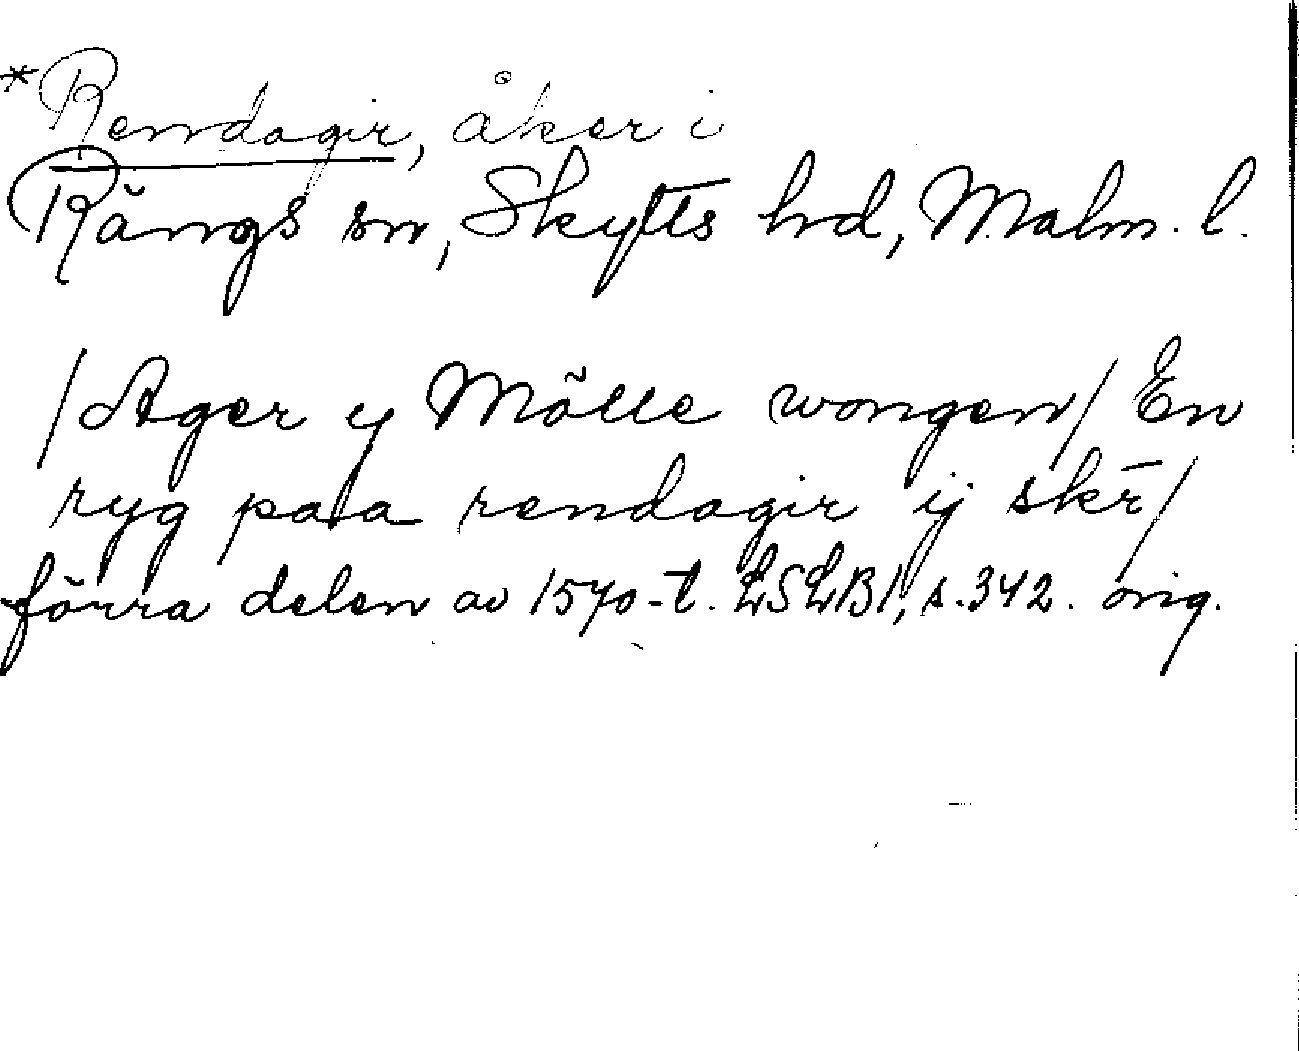 *Rendagir, åker i
Rängs sn, Skytts hd, Malm. l.
/Ager y Mölle wongen/ En
ryg paa rendagir ij skr̄/
förra delen av 1570-t. LSLB1, s.342. orig.